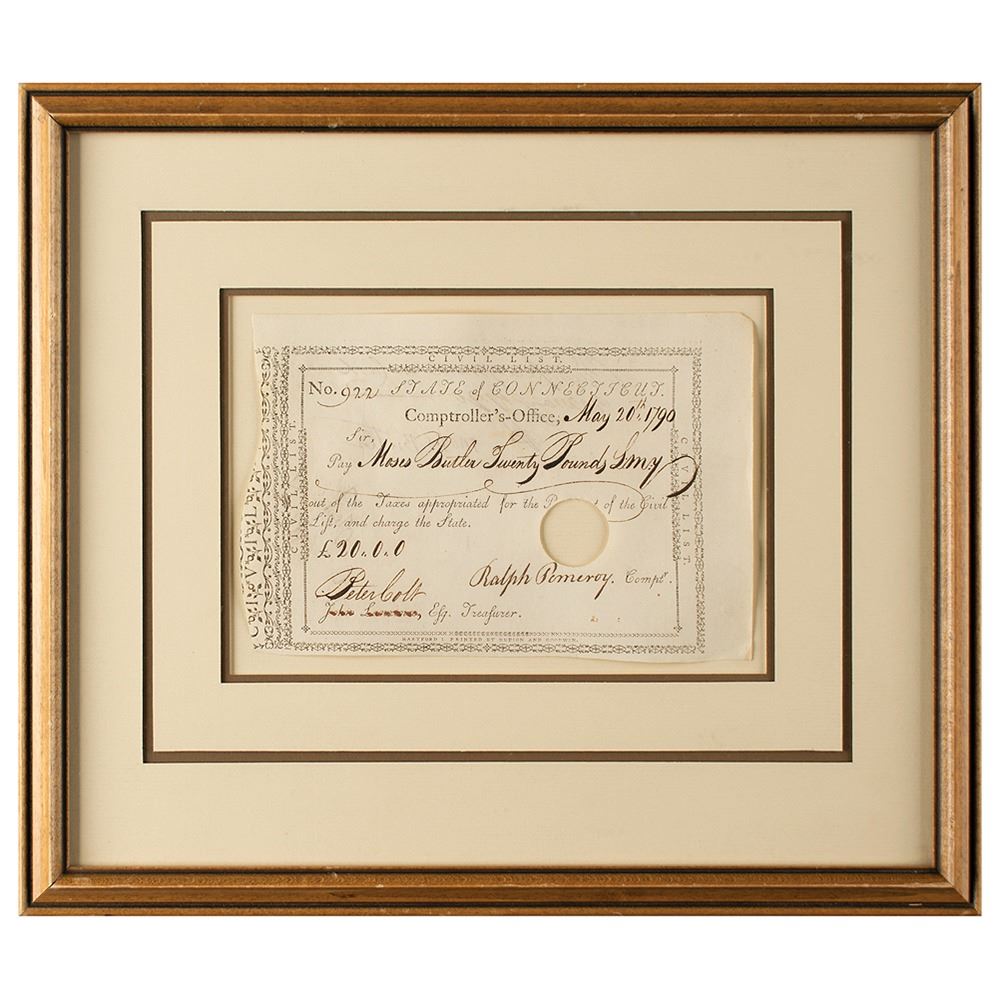 CIVIL LIST.
No. 922 STATE of CONNECTICUT.
Comptroller's-Office, May 20th. 1790
Sir,
Pay Moses Butler Twenty Pounds Lmy
out of the Taxes appropriated for the P t of the Civil
List, and charge the State.
£20.0.0
Ralph Pomeroy. Comptr.
Peter Colt
John Esq. Treasurer.
HARTFORD: PRINTED BY HUDSON AND GOODWIN.
CIVIL LIST.
CIVIL LIST.